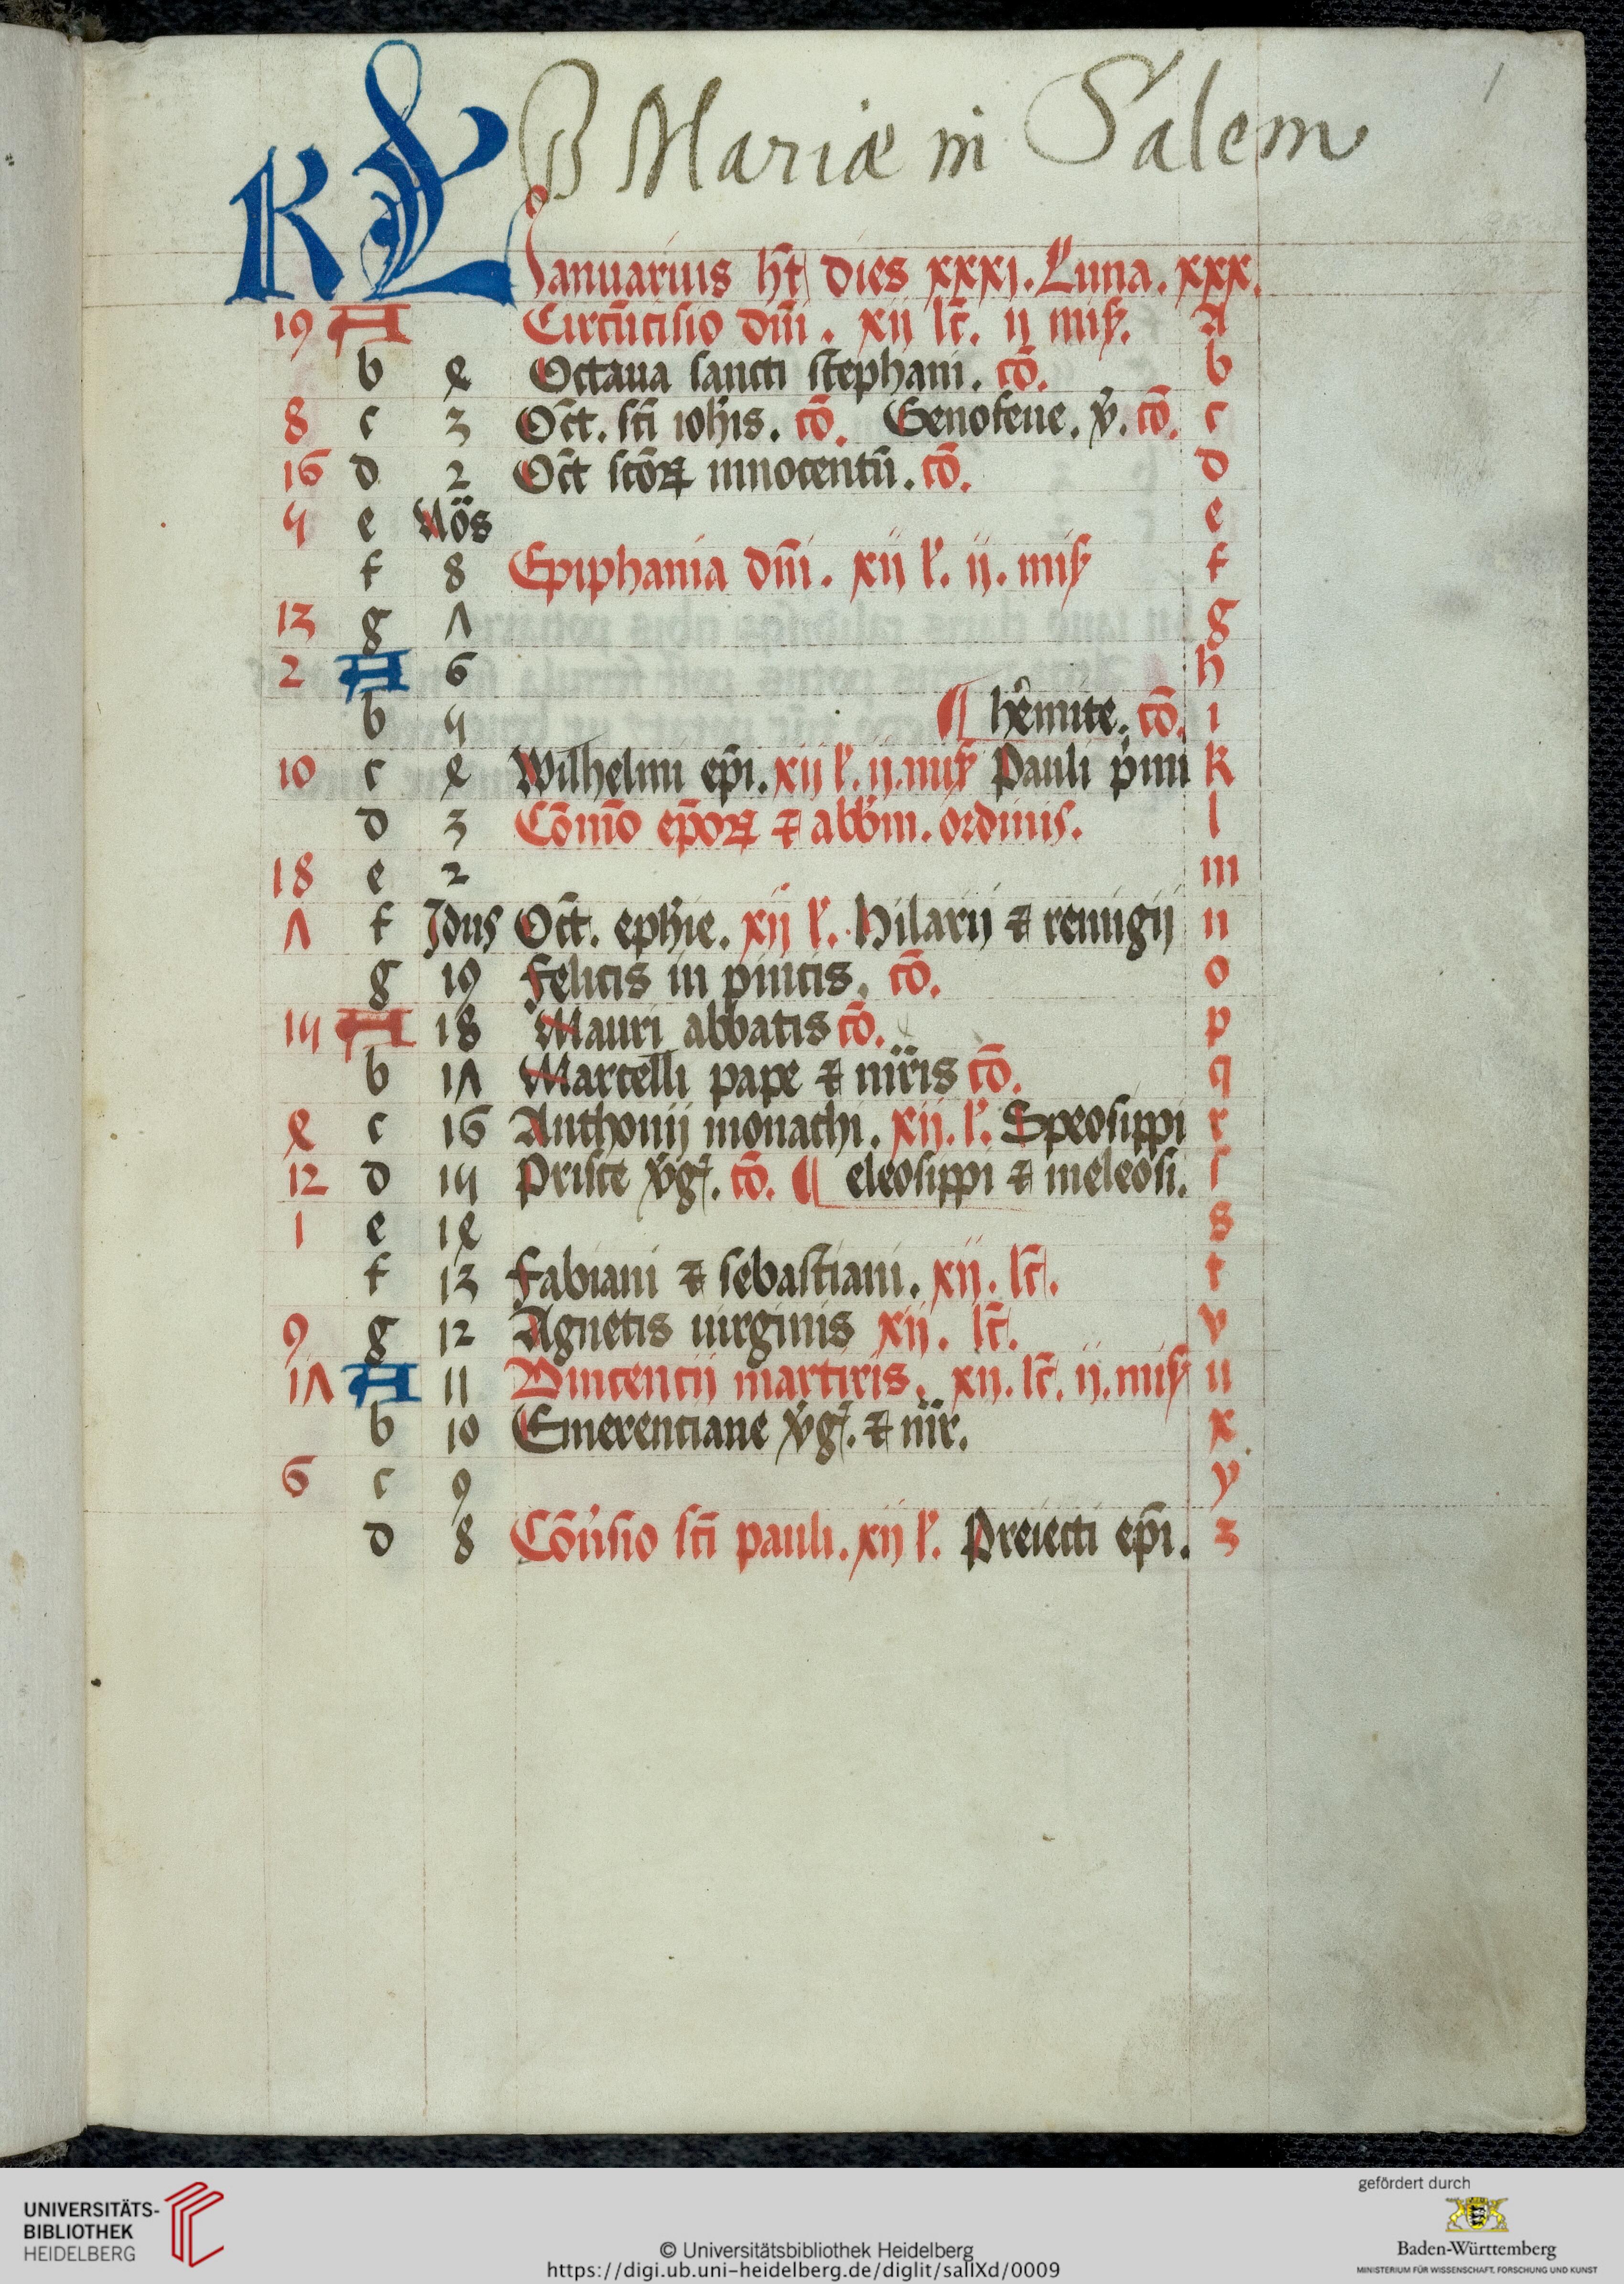 B Mariæ in Salem
1
KL Ianuarius hꝫt dies xxxi. Luna. xxx.
19 A Circūcisio dn̄i. xii lc̄. ii miſẜ. A
b 4 Octaua sancti stephani. cō. b
8 c 3 Oct̄. sc̄i ioh̄is. cō. Genofeue. v̄. cō. c
16 d 2 Oct̄ sctōꝝ innocentū. cō. d
5 e Nōs e
f 8 Epiphania dn̄i. xii l'. ii. miſẜ f
13 g 7 g
2 A 6 h
b 5 ¶ h'emite. cō. i
10 c 4 Wilhelmi ep̄i. xii l'. ii. miſẜ Pauli p'mi k
d 3 Cōm̄o ep̄oꝝ ⁊ abb'm. ordinis. l
18 e 2 m
7 f Idus Oct̄. eph'ie. xii l'. Hilarii ⁊ remigii n
g 19 Felicis in pincis. cō. o
15 A 18 Mauri abbatis cō. p
b 17 Marcelli pape ⁊ m̄ris cō. q
4 c 16 Anthonii monachi. xii. l'. Speosippi r
12 d 15 Prisce v'ḡ. cō. ¶ eleosippi ⁊ meleosi. ſ
1 e 14 s
f 13 Fabiani ⁊ sebastiani. xii. lc̄. t
9 g 12 Agnetis uirginis xii. lc̄. v
17 A 11 Vincencii martiris. xii. lc̄. ii. miſẜ u
b 10 Emerenciane v'ḡ. ⁊ m̄r. x
6 c 9 y
d 8 Cōu'sio sc̄i pauli. xii l'. Preiecti ep̄i. z
UNIVERSITÄTS-
BIBLIOTHEK
HEIDELBERG
© Universitätsbibliothek Heidelberg
https://digi.ub.uni-heidelberg.de/diglit/salIXd/0009
gefördert durch
Baden-Württemberg
MINISTERIUM FÜR WISSENSCHAFT, FORSCHUNG UND KUNST